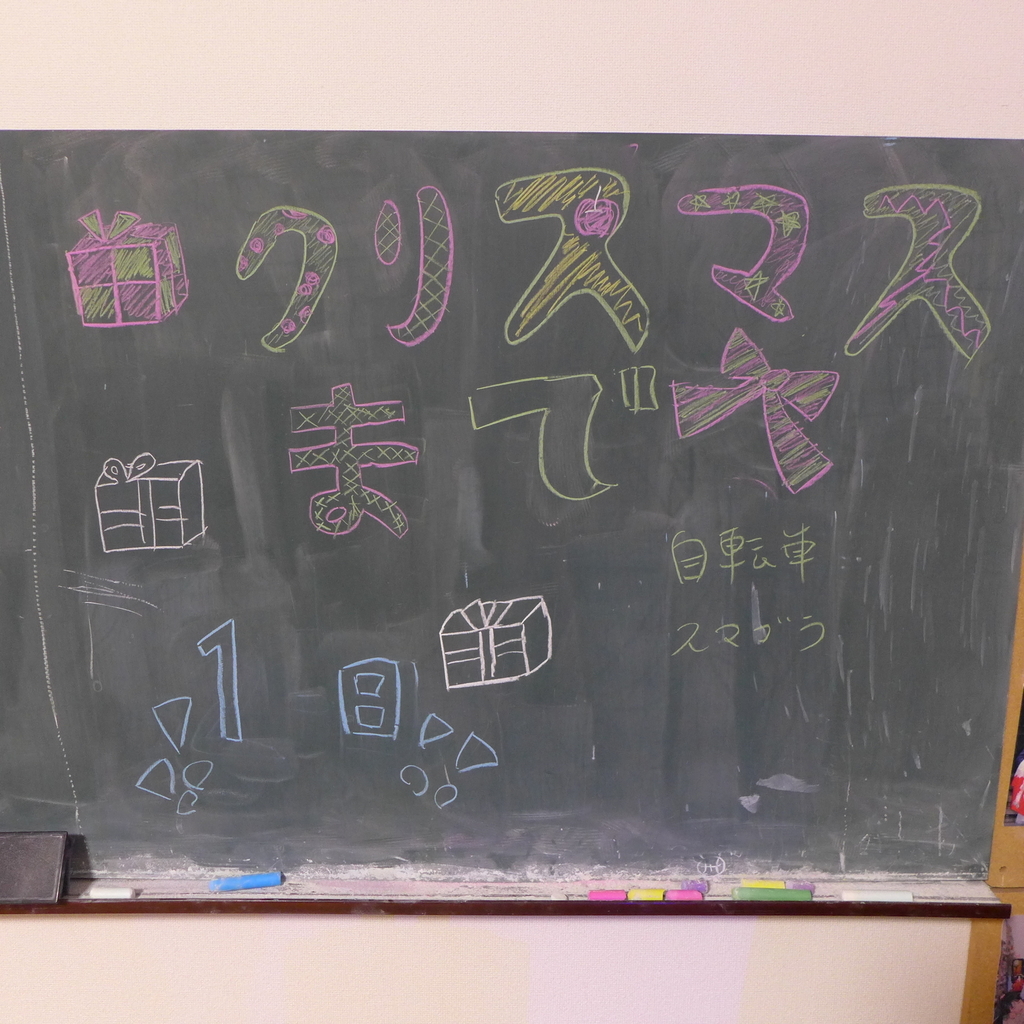 クリスマス
まで
1日
自転車
スマブラ